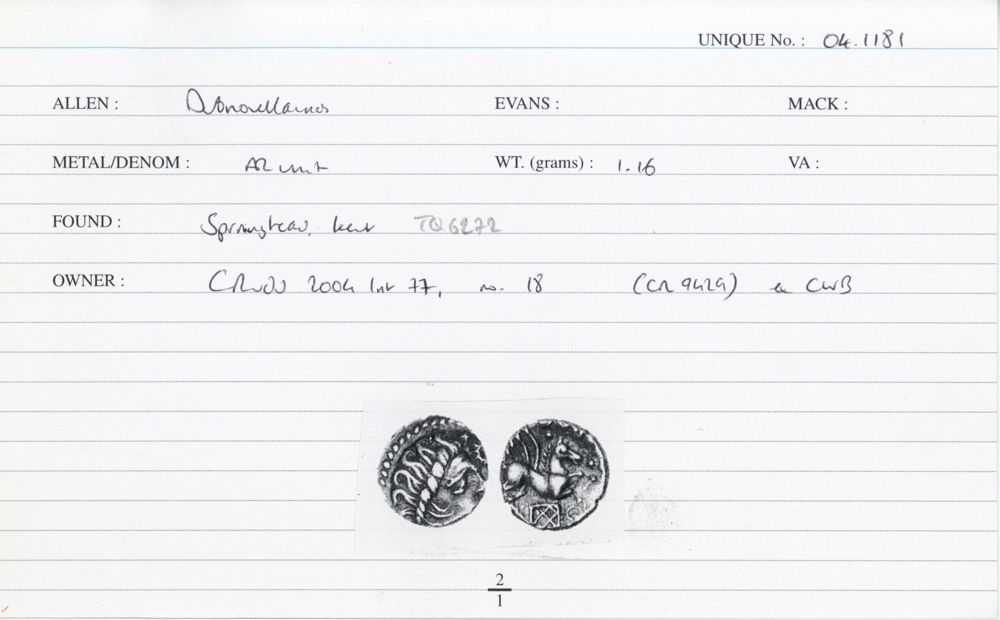 UNIQUE No. : 04.1181
ALLEN : Dubnovellaunos EVANS : MACK :
METAL/DENOM : AR unit WT. (grams) : 1.16 VA :
FOUND : Springhead, Kent TQ6272
OWNER : 2004 77, no. 18 (CR 9429) CWB
2
1